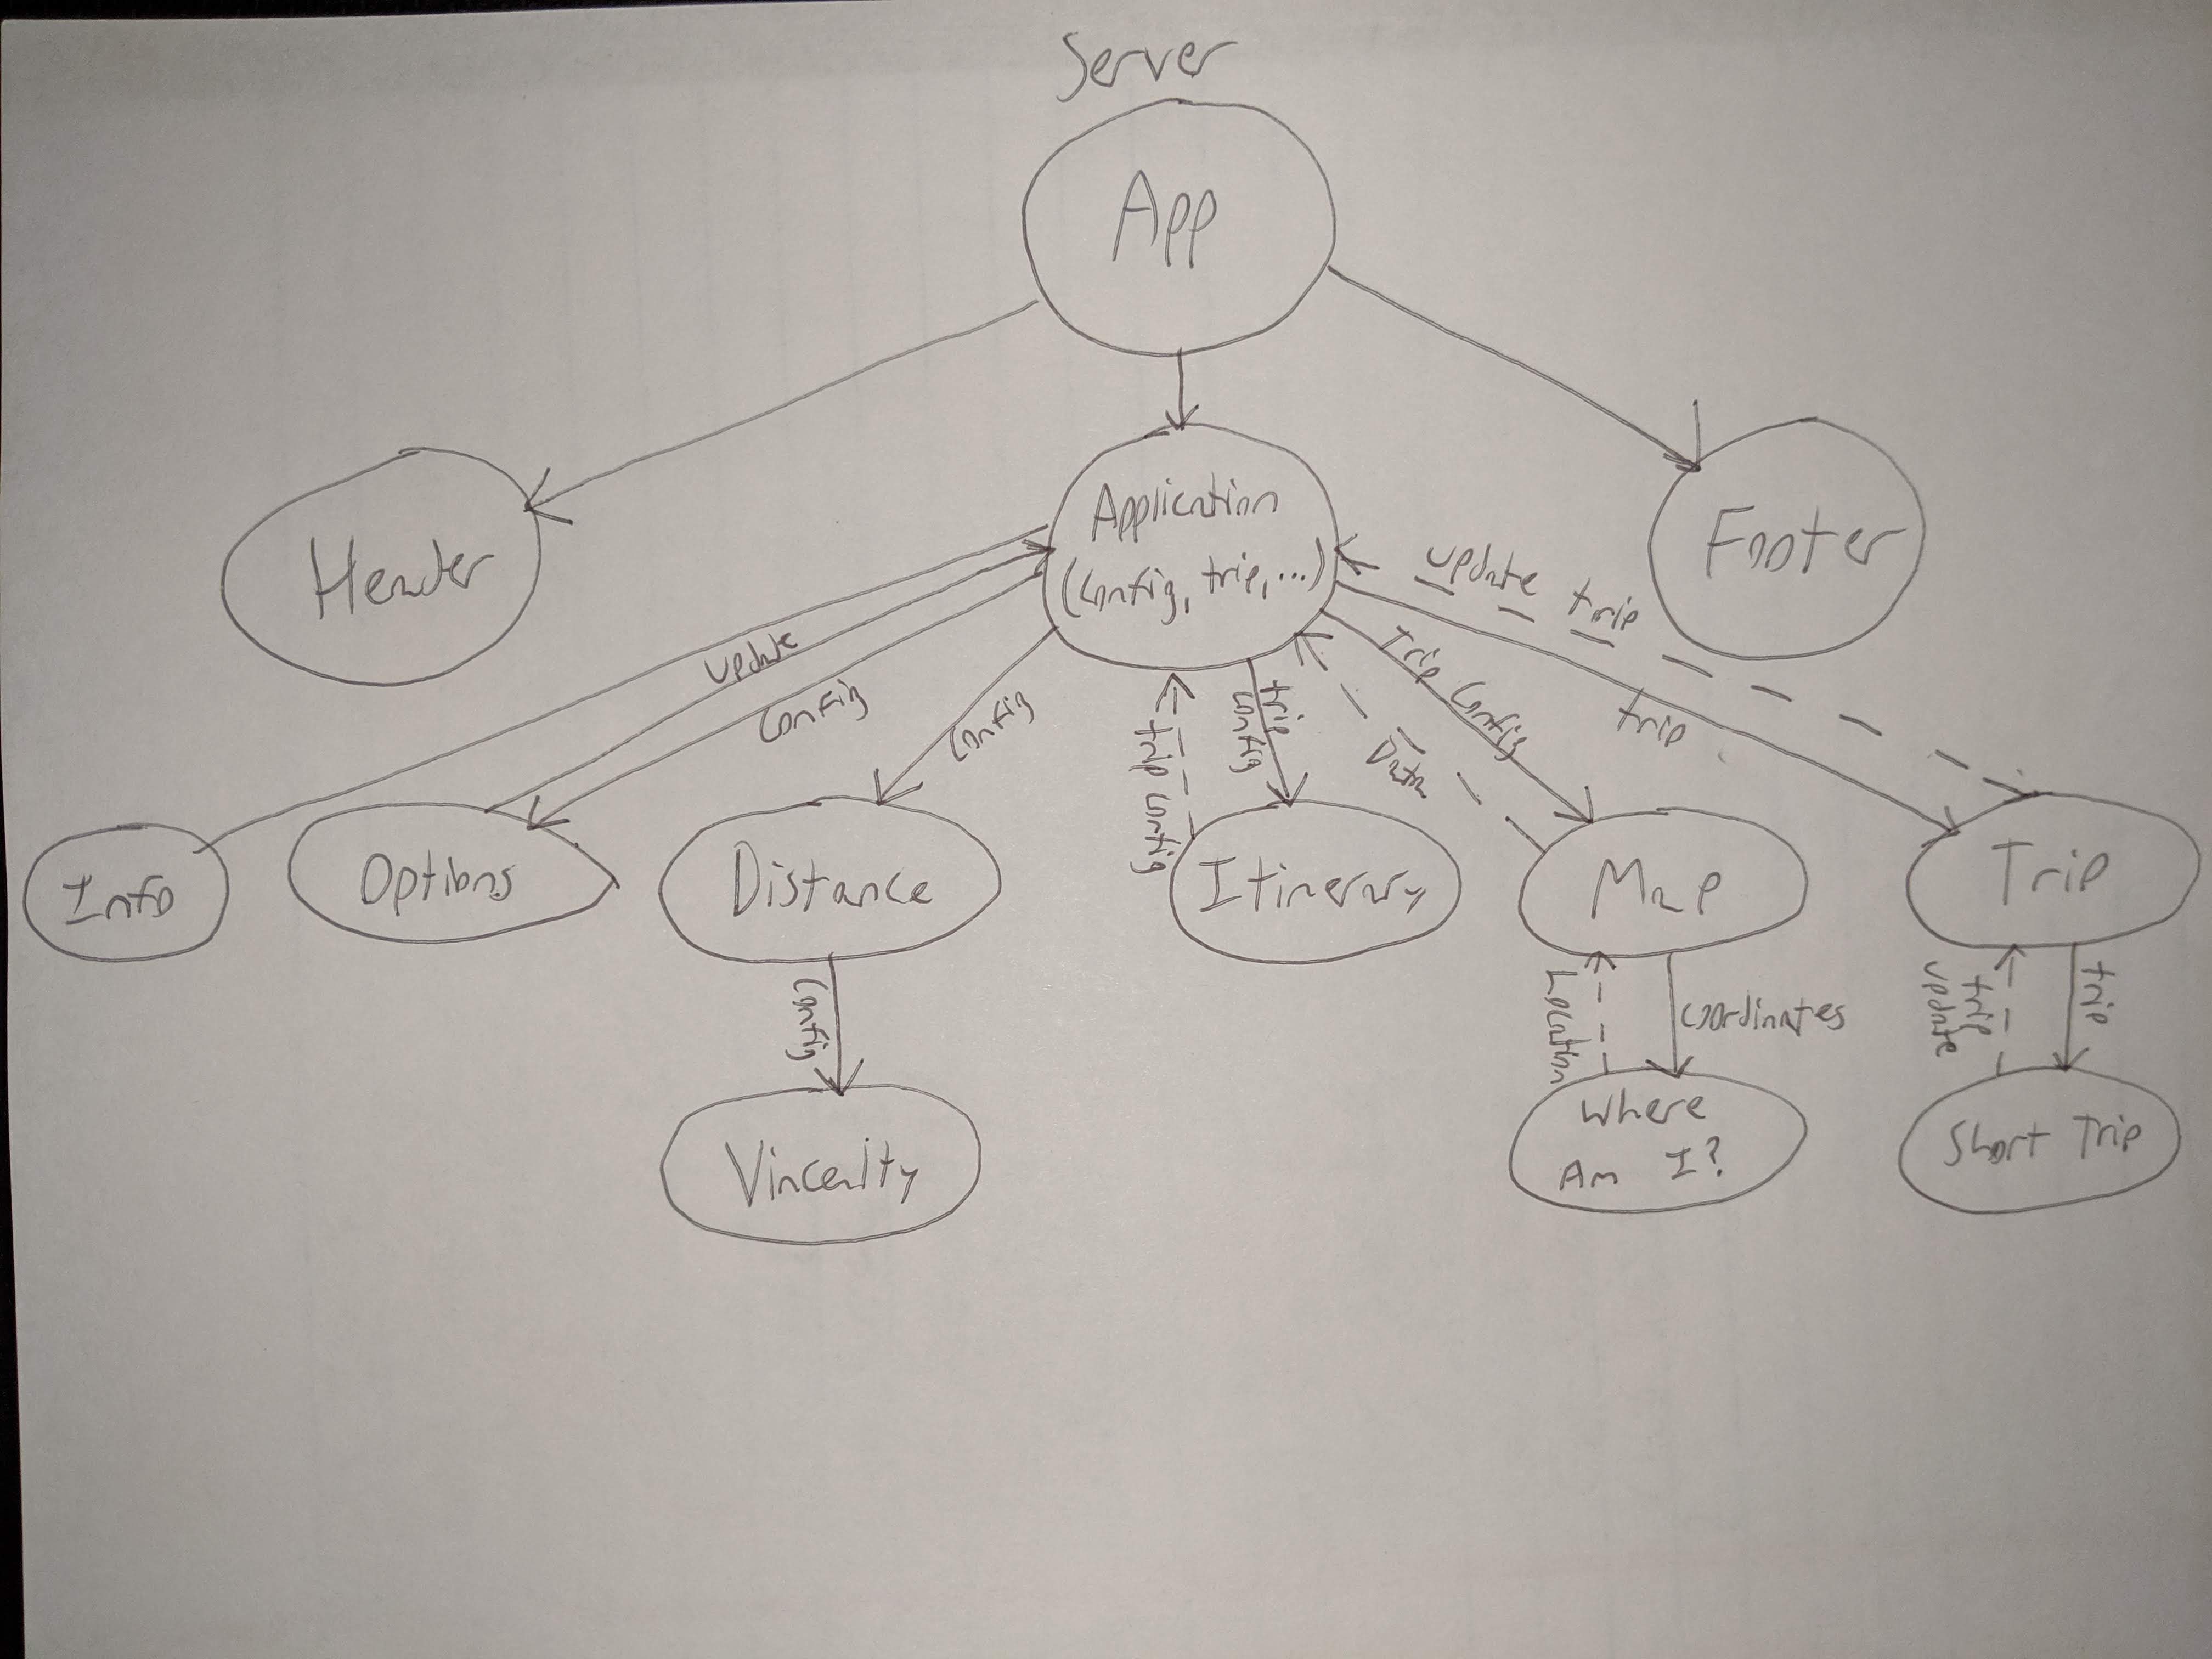 Server
App
Header
Application
(Config, trip, ...)
Footer
update
Config
Config
trip config
trip
config
Data
Trip Config
update trip
trip
Info
Options
Distance
Itinerary
Map
Trip
Config
Location
coordinates
trip
update
trip
Vincenlty
Where
Am I?
Short Trip